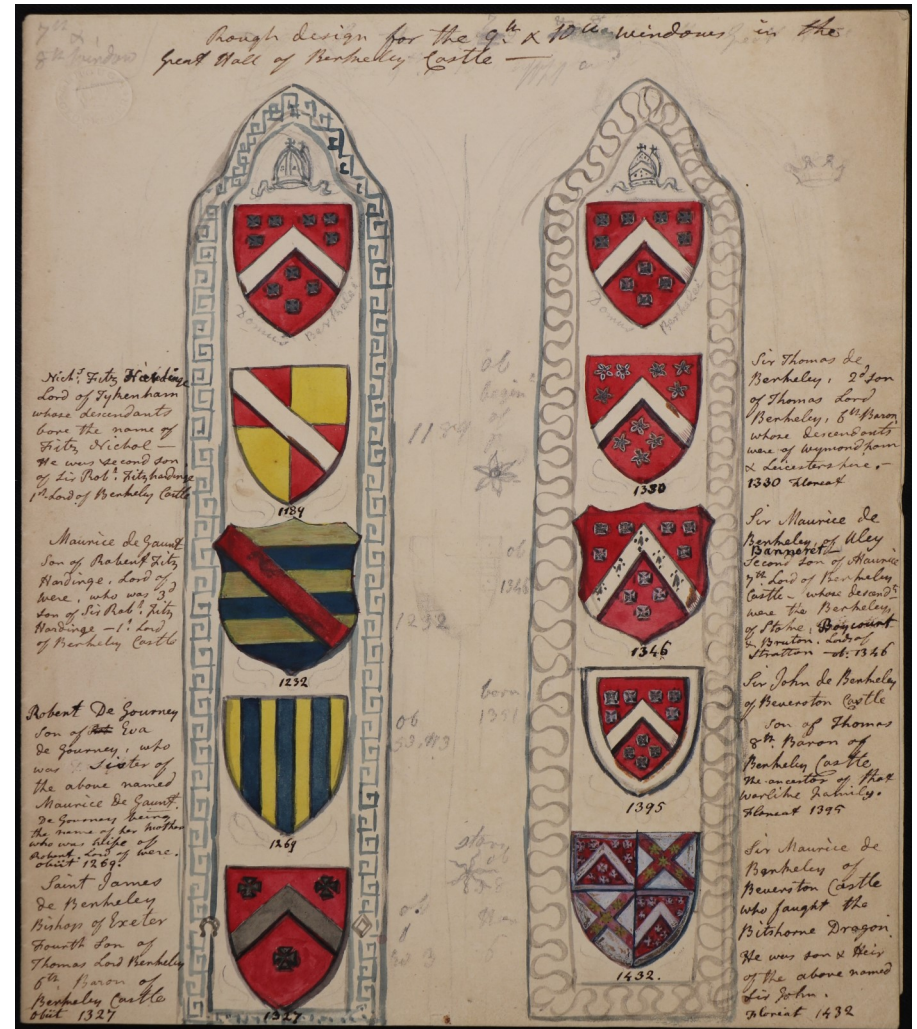 Rough design for the 9th & 10th windows in the
Great Hall of Berkeley Castle —
7th &
8th window
Domus Berkelei
Nichs. Fitz Hardinge
Lord of Tykenham
whose descendants
bore the name of
Fitz Nichol —
He was second son
of Sir Robt. Fitzhardinge
1st Lord of Berkeley Castle
1189
Maurice de Gaunt
Son of Robert Fitz
Hardinge, Lord of
were, who was 3d
son of Sir Robt. Fitz
Hardinge — 1st Lord
of Berkeley Castle
1232
Robert De Gourney
Son of Eva
de Gourney, who
was Sister of
the above named
Maurice de Gaunt.
De Gourney being
the name of her mother
who was Wife of
Robert Lord of were.
obiit 1269.
1269
Saint James
de Berkeley
Bishop of Exeter
Fourth Son of
Thomas Lord Berkeley
6th Baron of
Berkeley Castle
obiit 1327
1327
1189
1232
ob
ob
begin
of
ob
1346
born
1351
Domus Berkelei
Sir Thomas de
Berkeley, 2d son
of Thomas Lord
Berkeley, 6th Baron
whose descendants
were of Wymondham
& Leicestershere. —
1330 Floreat
1330
Sir Maurice de
Berkeley, of Uley
Banneret —
Second Son of Maurice
7th Lord of Berkeley
Castle — whose descendts
were the Berkeley,
of Stoke, Boycourt
& Bruton, Lords of
Stratton — ob. 1346
1346
Sir John de Berkeley
of Beverston Castle
Son of Thomas
8th Baron of
Berkeley Castle
The ancestor of that
warlike Family.
Floreat 1395
1395
Sir Maurice de
Berkeley of
Beverston Castle
who faught the
Bitshorne Dragon.
He was son & Heir
of the above named
Sir John.
Floreat 1432
1432.